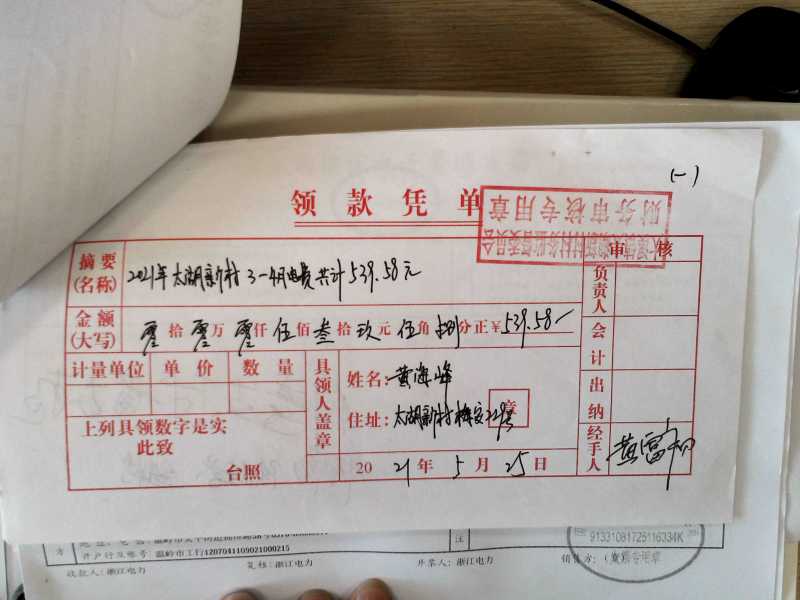 (一)
领款凭单
财务审核专用章
审核
摘要(名称) 2021年太湖新村3-4月电费共计539.58元
金额(大写) 零拾零万零仟伍佰叁拾玖元伍角捌分正¥539.58
计量单位 单价 数量
上列具领数字是实
此致
台照
具领人盖章
姓名:黄海峰
住址:太湖新村
章
2021年5月25日
负责人
会计
出纳
经手人
方
注
开户行及账号 温岭市工行1207041109021000215
收款人:浙江电力 复核:浙江电力 开票人:浙江电力 销售方:(章)
91331081725116334K
发票专用章